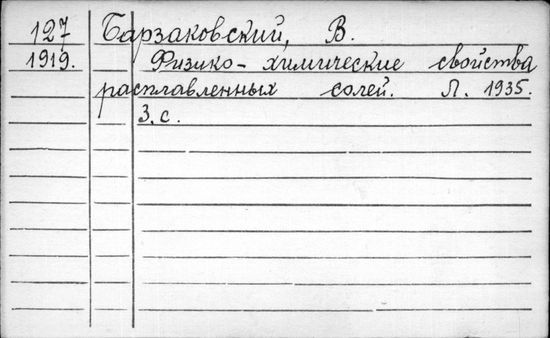 127 Барзаковский, В.
1919. Физико-химические свойства
расплавленных солей. Л. 1935.
3.с.